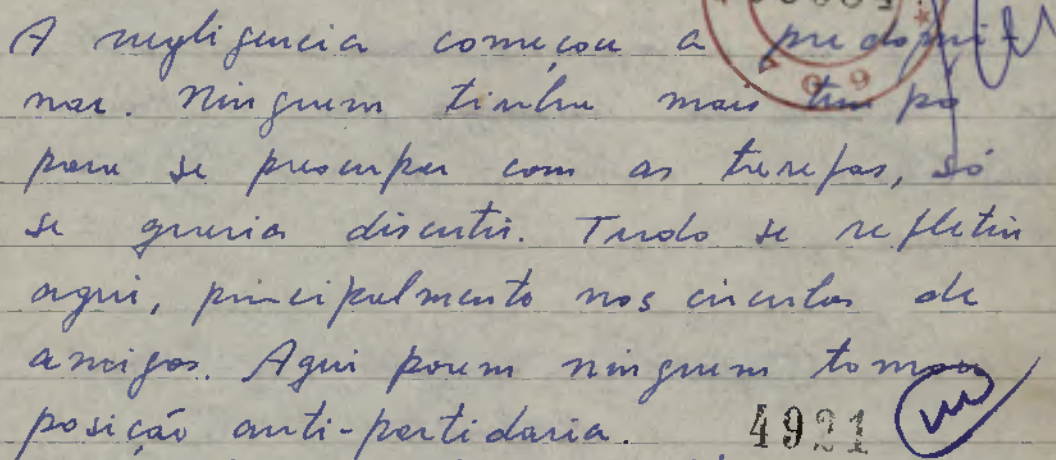 A negligencia começou a predomi-
nar. Ninguem tinha mais tempo
para se preocupar com as tarefas, só
se queria discutir. Tudo se refletiu
aqui, principalmente nos circulos de
amigos. Aqui porem ninguem tomou
posição anti-partidaria. 4921